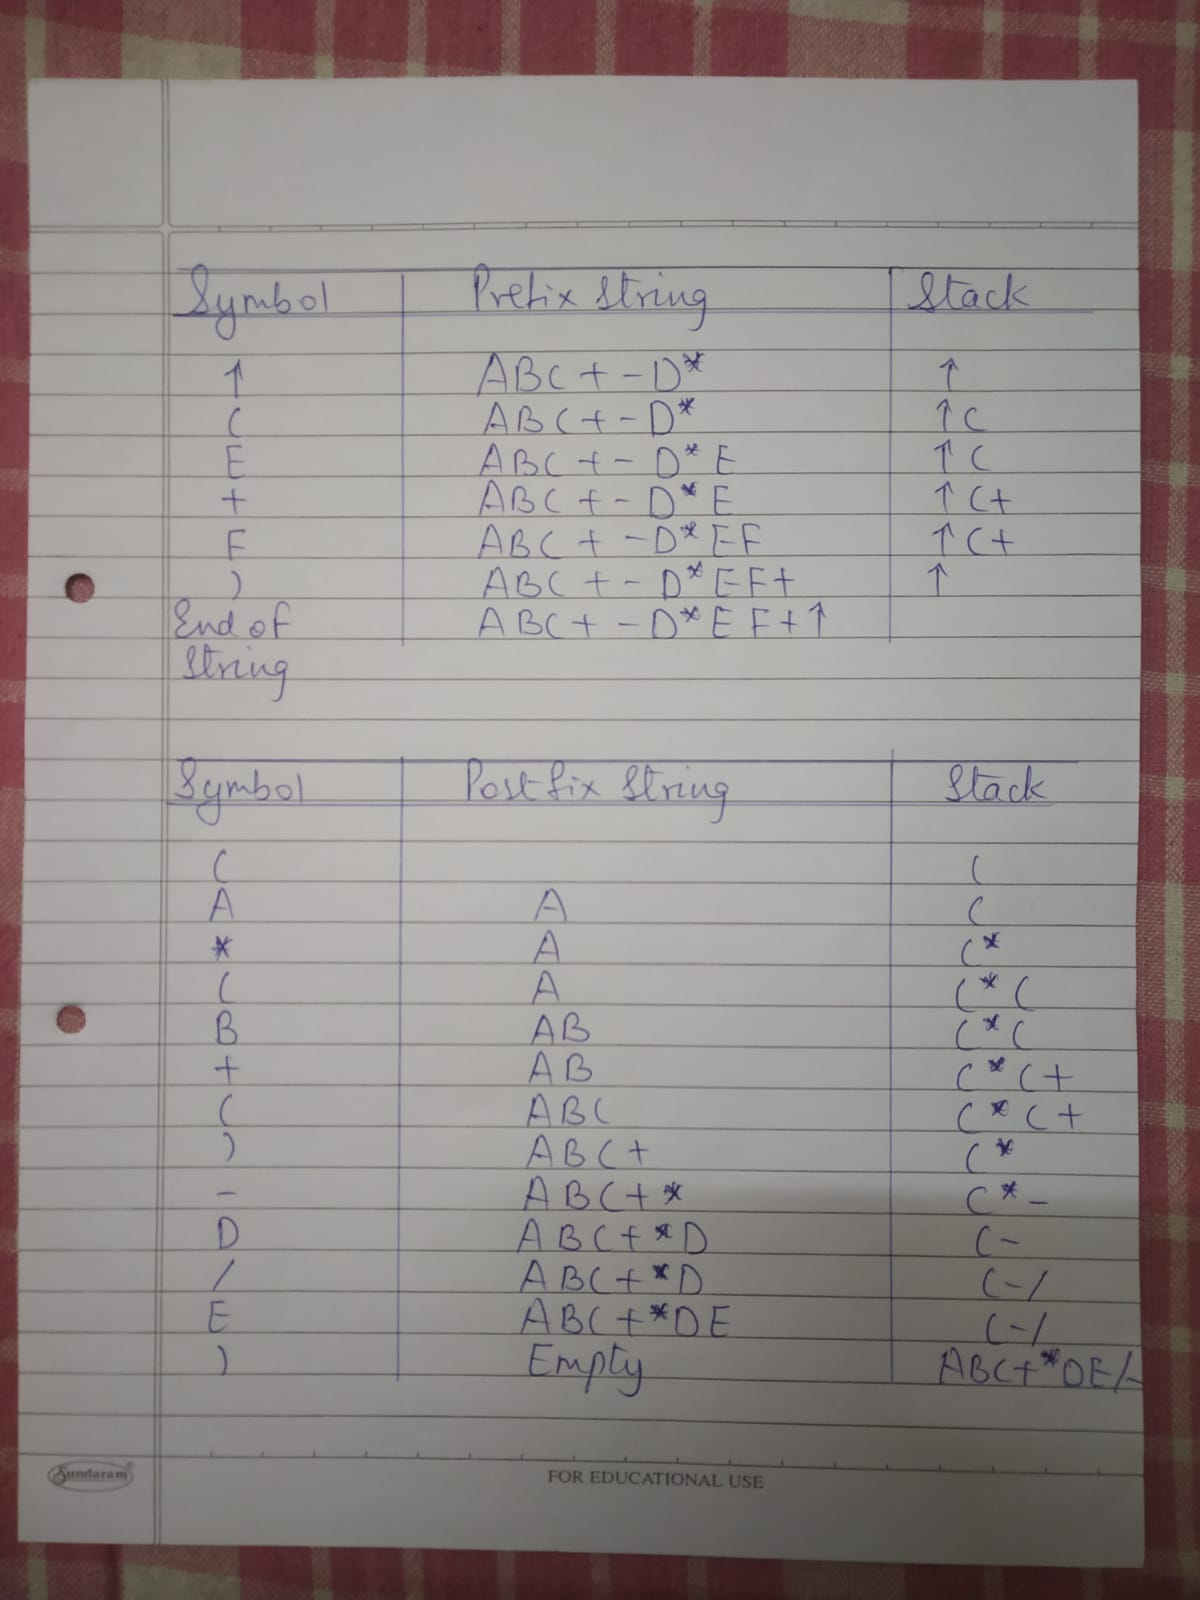 Symbol Prefix String Stack
↑ ABC+-D* ↑
( ABC+-D* ↑(
E ABC+-D*E ↑(
+ ABC+-D*E ↑(+
F ABC+-D*EF ↑(+
) ABC+-D*EF+ ↑
End of ABC+-D*EF+↑
String
Symbol Postfix String Stack
( (
A A (
* A (*
( A (*(
B AB (*(
+ AB (*(+
( ABC (*(+
) ABC+ (*
- ABC+* (*-
D ABC+*D (-
/ ABC+*D (-/
E ABC+*DE (-/
) Empty ABC+*DE/-
Sundaram
FOR EDUCATIONAL USE